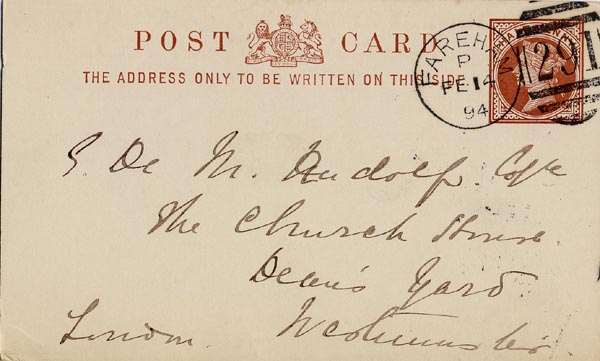 POST CARD
THE ADDRESS ONLY TO BE WRITTEN ON THIS SIDE.
FAREHAM
P
FE 14
94
291
E De M. Rudolf Esqre
The Church House
Dean's Yard
London. Westminster.